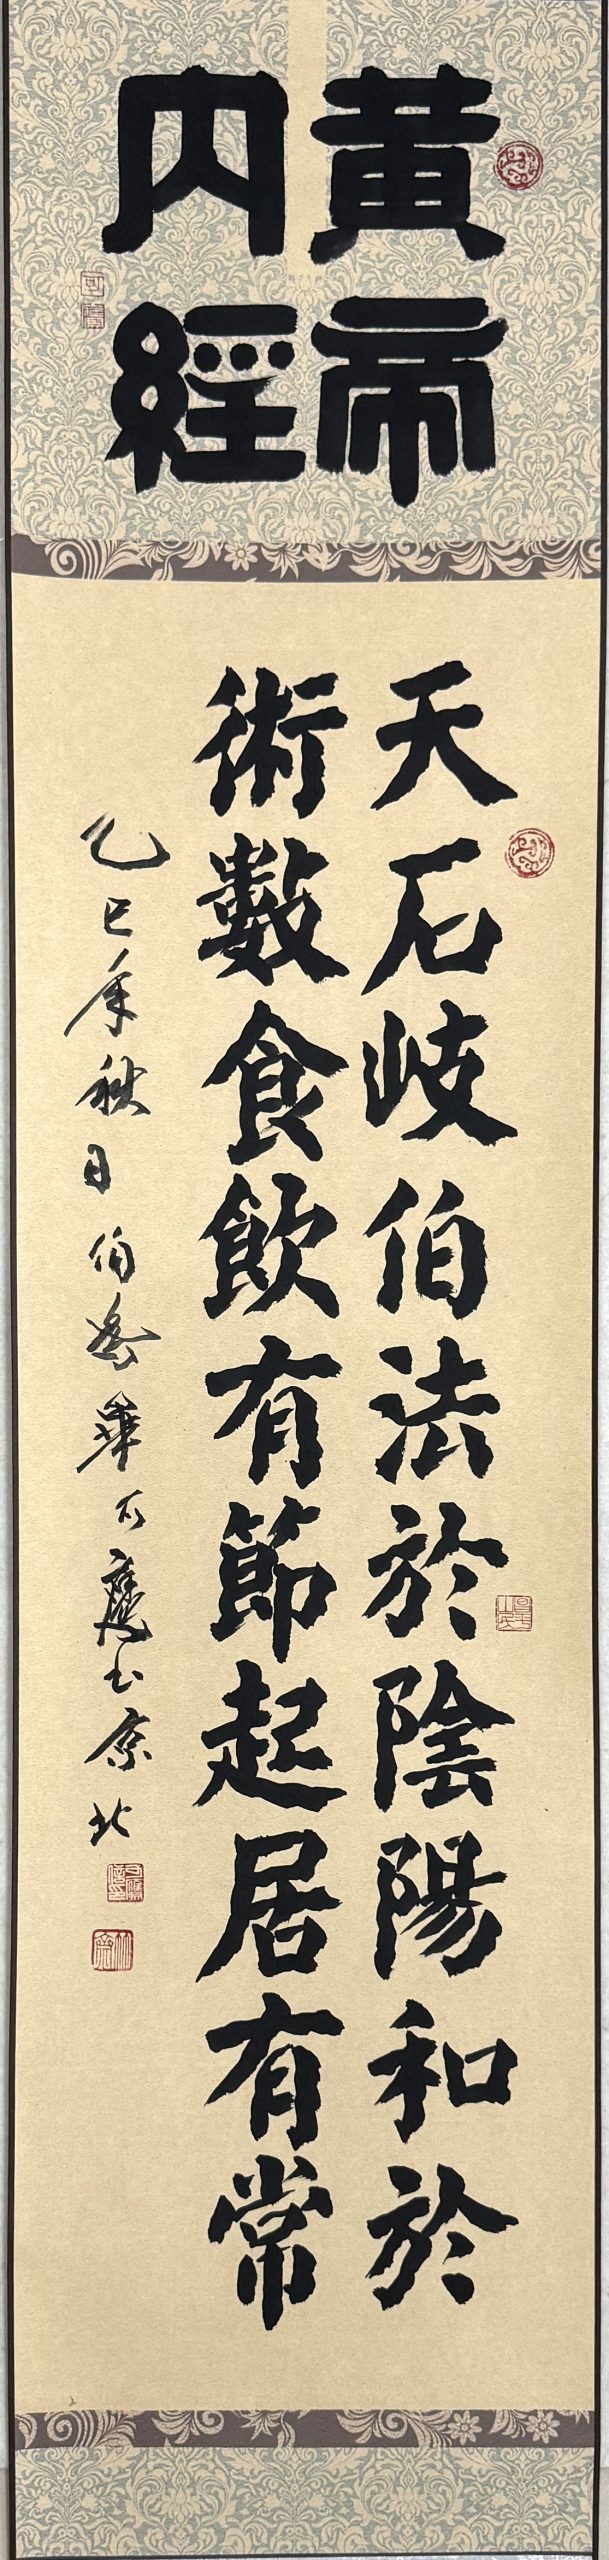 黄帝
內經
天石岐伯法於陰陽和於
術數食飲有節起居有常
乙巳年秋日伯華石應書京北